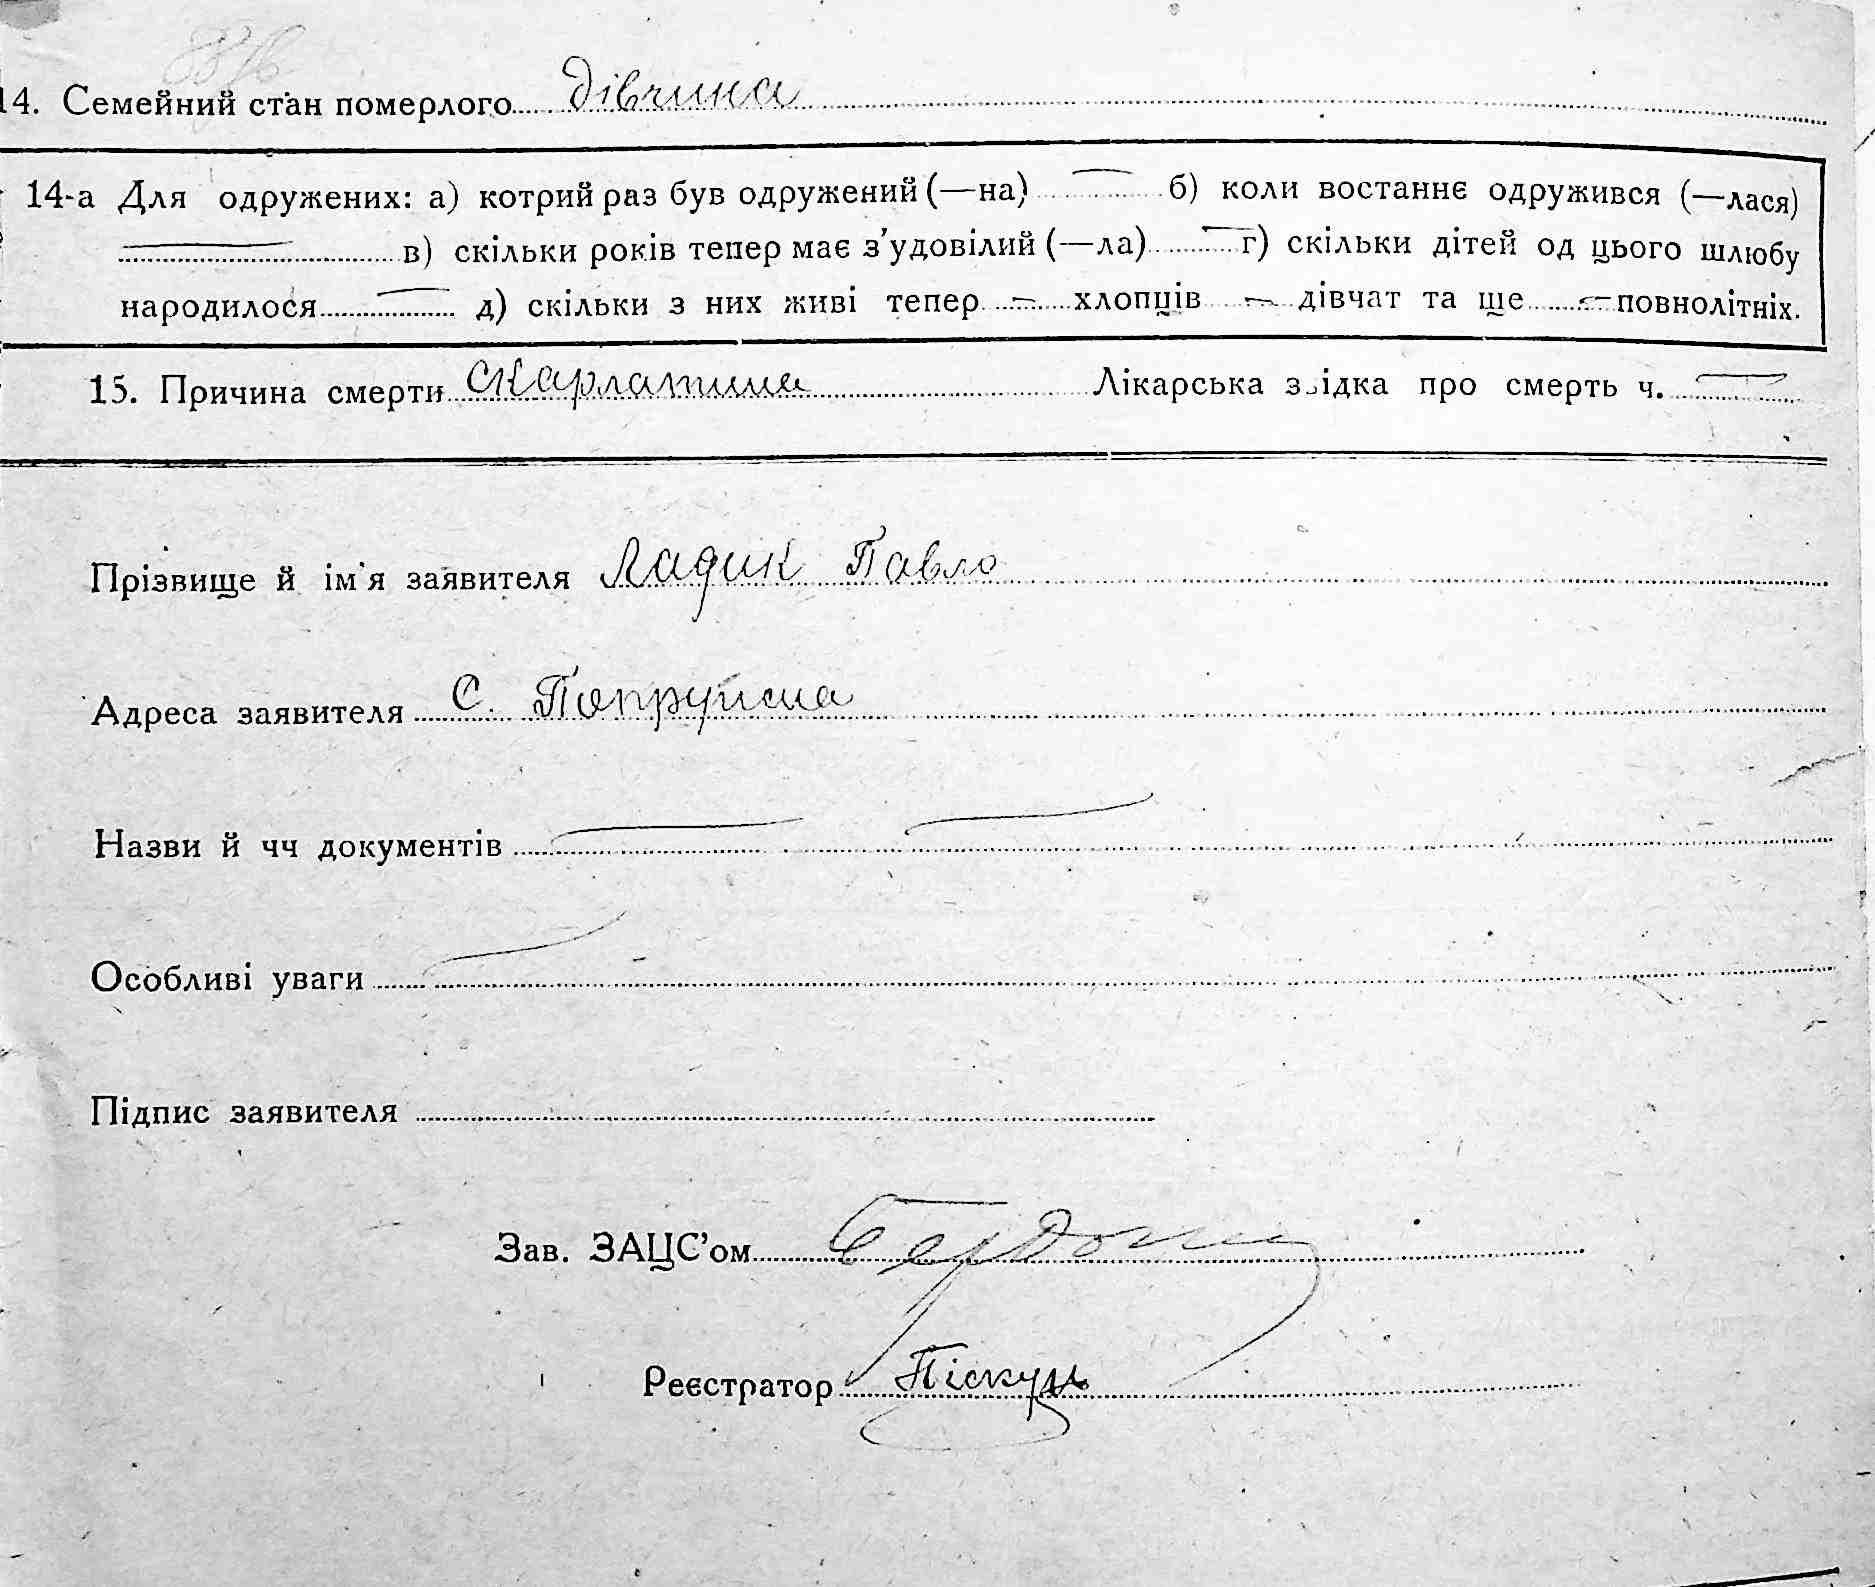 14. Семейний стан померлого дівчина
14-а Для одружених: а) котрий раз був одружений (—на) — б) коли востаннє одружився (—лася)
— в) скільки років тепер має з’удовілий (—ла) — г) скільки дітей од цього шлюбу
народилося — д) скільки з них живі тепер — хлопців — дівчат та ще — повнолітніх.
15. Причина смерти скарлатина Лікарська звідка про смерть ч. —
Прізвище й ім'я заявителя Ладик Павло
Адреса заявителя С. Попружна
Назви й чч документів — —
Особливі уваги —
Підпис заявителя
Зав. ЗАЦС’ом
Реєстратор Піскун